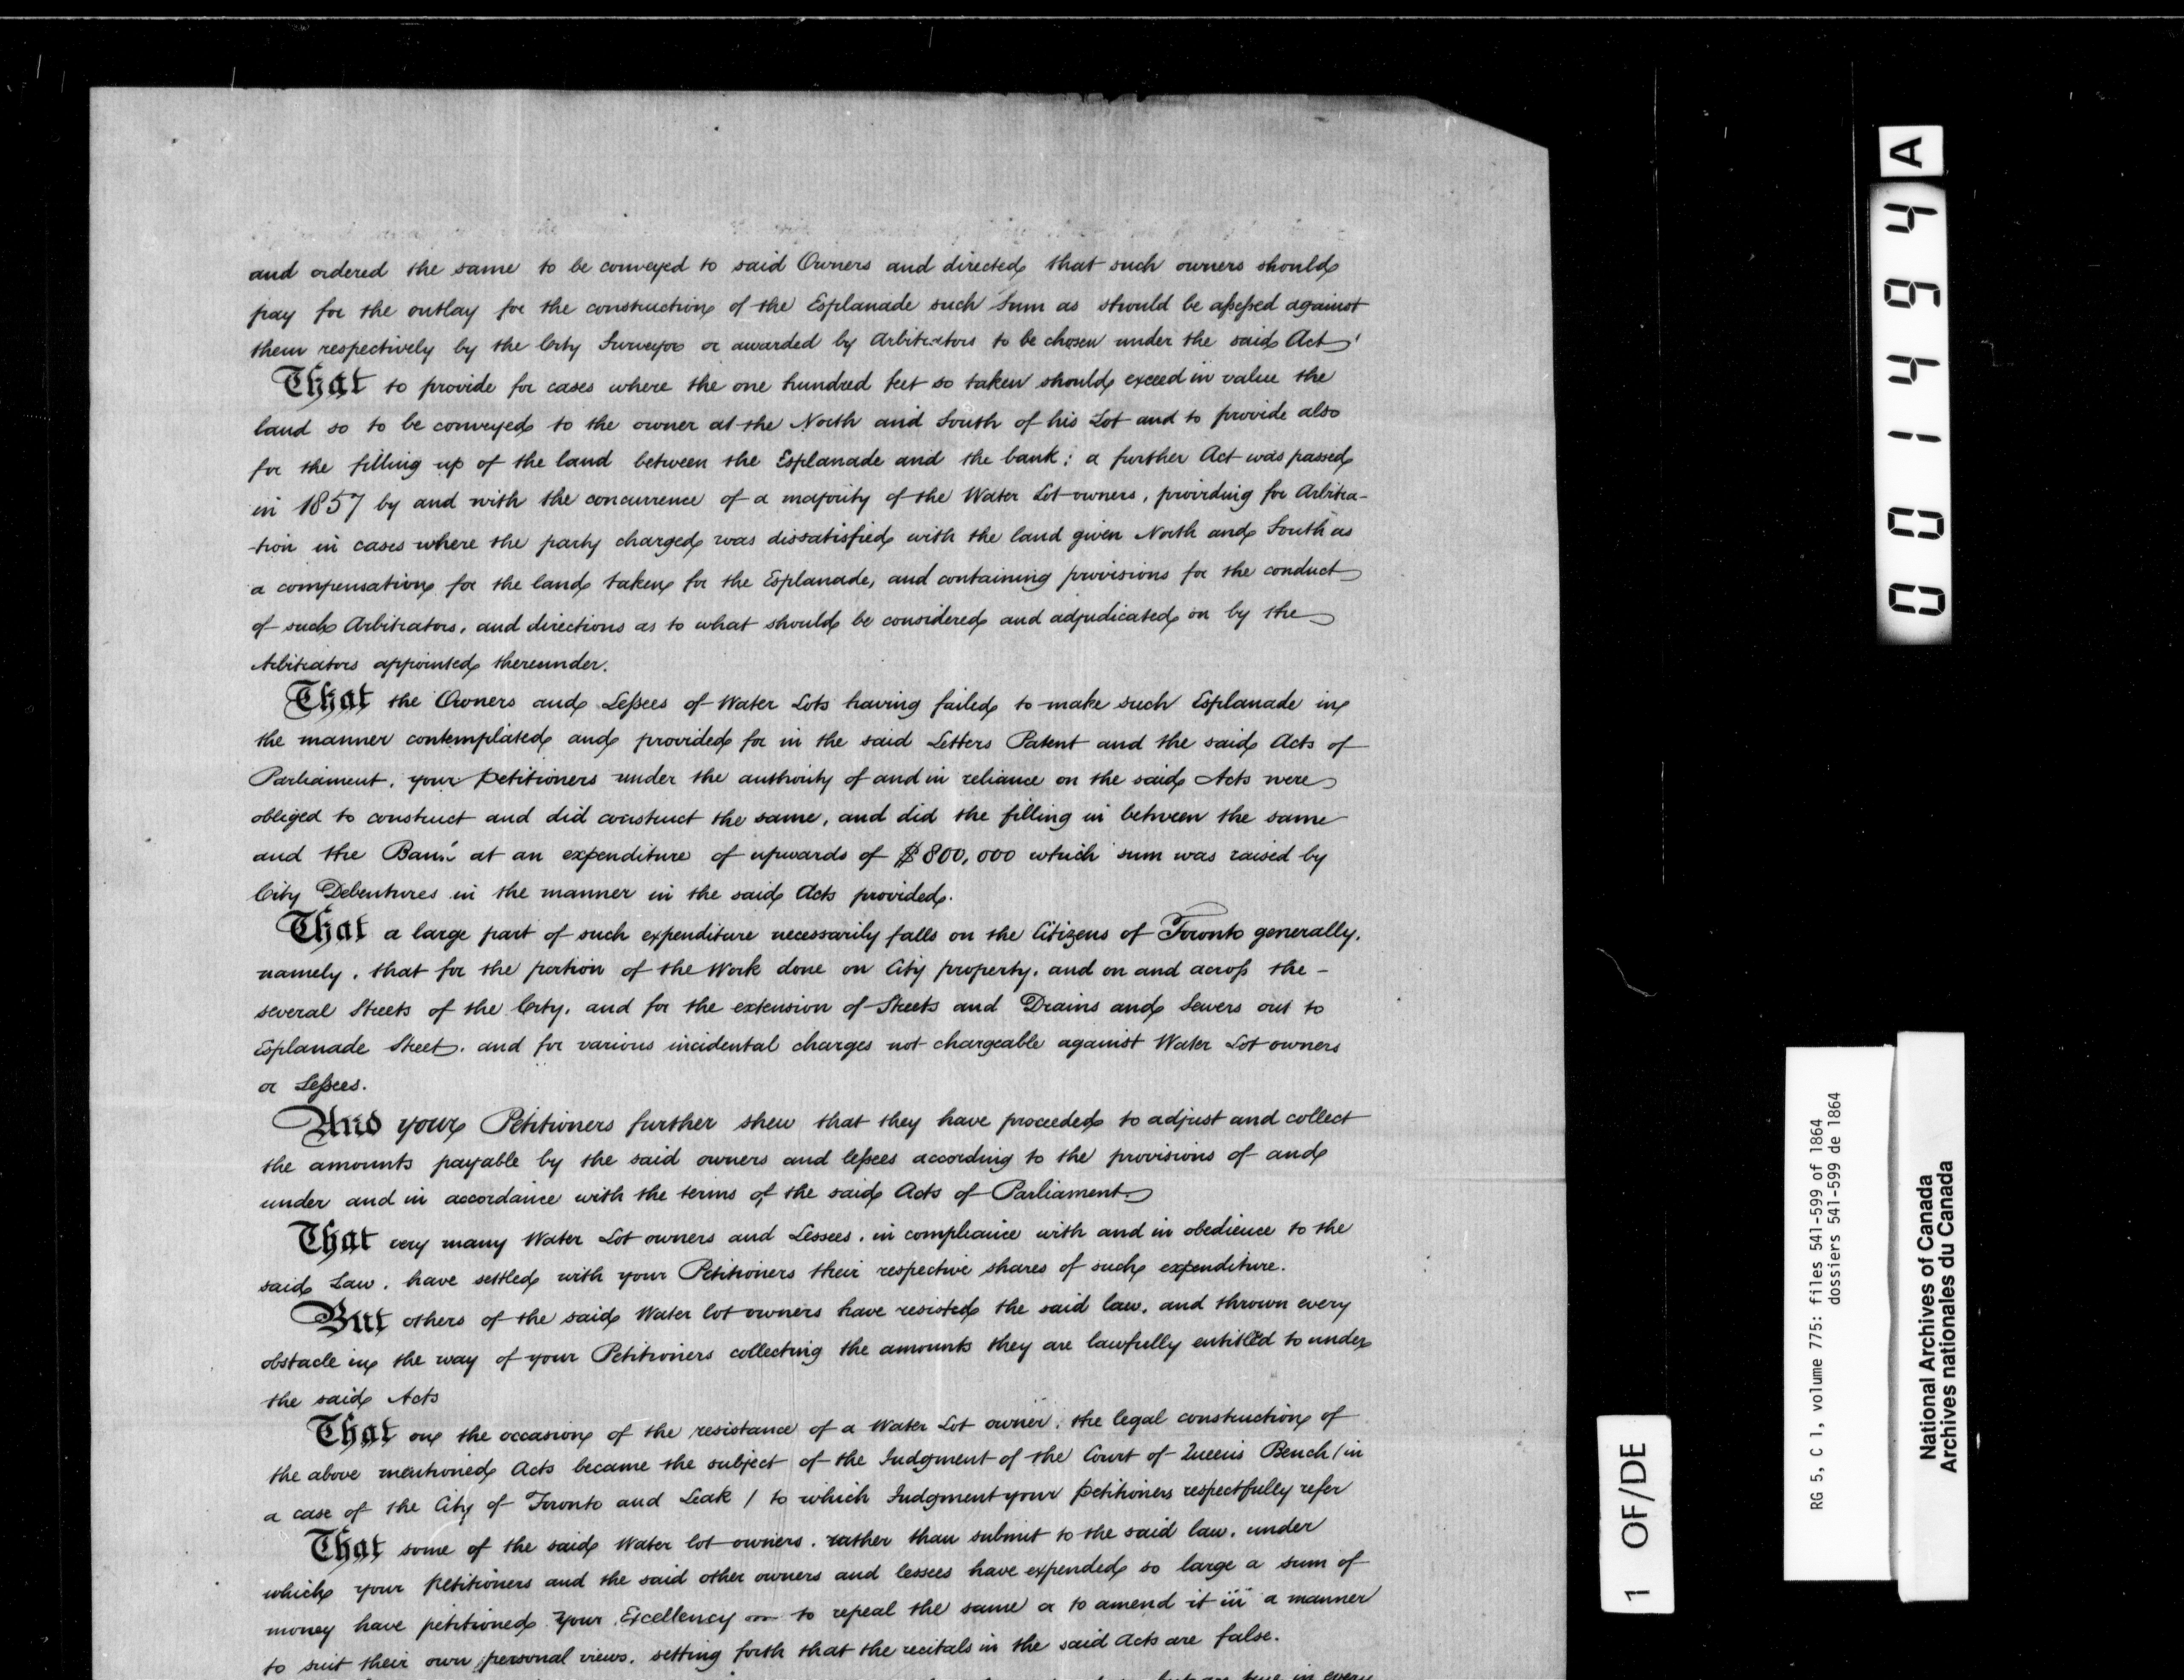 and ordered the same to be conveyed to said Owners and directed that such owners should
pay for the outlay for the construction of the Esplanade such Sum as should be assessed against
them respectively by the City Surveyor or awarded by Arbitrators to be chosen under the said Act
That to provide for cases where the one hundred feet so taken should exceed in value the
land so to be conveyed to the owner at the North and South of his Lot and to provide also
for the filling up of the land between the Esplanade and the bank; a further Act was passed
in 1857 by and with the concurrence of a majority of the Water Lot owners, providing for Arbitra-
-tion in cases where the party charged was dissatisfied with the land given North and South as
a compensation for the land taken for the Esplanade, and containing provisions for the conduct
of such Arbitrators, and directions as to what should be considered and adjudicated on by the
Arbitrators appointed thereunder.
That the Owners and Lessees of Water Lots having failed to make such Esplanade in
the manner contemplated and provided for in the said Letters Patent and the said Acts of
Parliament, your Petitioners under the authority of and in reliance on the said Acts were
obliged to construct and did construct the same, and did the filling in between the same
and the Bank at an expenditure of upwards of $800,000 which sum was raised by
City Debentures in the manner in the said Acts provided.
That a large part of such expenditure necessarily falls on the Citizens of Toronto generally,
namely, that for the portion of the Work done on City property, and on and across the -
several Streets of the City, and for the extension of Streets and Drains and Sewers out to
Esplanade Street, and for various incidental charges not chargeable against Water Lot owners
or Lessees.
And your Petitioners further shew that they have proceeded to adjust and collect
the amounts payable by the said owners and lessees according to the provisions of and
under and in accordance with the terms of the said Acts of Parliament
That very many Water Lot owners and Lessees, in compliance with and in obedience to the
said Law, have settled with your Petitioners their respective shares of such expenditure.
But others of the said Water lot owners have resisted the said law, and thrown every
obstacle in the way of your Petitioners collecting the amounts they are lawfully entitled to under
the said Acts
That on the occasion of the resistance of a Water Lot owner, the legal construction of
the above mentioned Acts became the subject of the Judgment of the Court of Queens Bench (in
a case of the City of Toronto and Leak) to which Judgment your Petitioners respectfully refer
That some of the said Water lot owners, rather than submit to the said law, under
which your Petitioners and the said other owners and lessees have expended so large a sum of
money have petitioned Your Excellency to repeal the same or to amend it in a manner
to suit their own personal views, setting forth that the recitals in the said Acts are false.
true in every
001494 A
1 OF/DE
RG 5, C 1, volume 775: files 541-599 of 1864
dossiers 541-599 de 1864
National Archives of Canada
Archives nationales du Canada